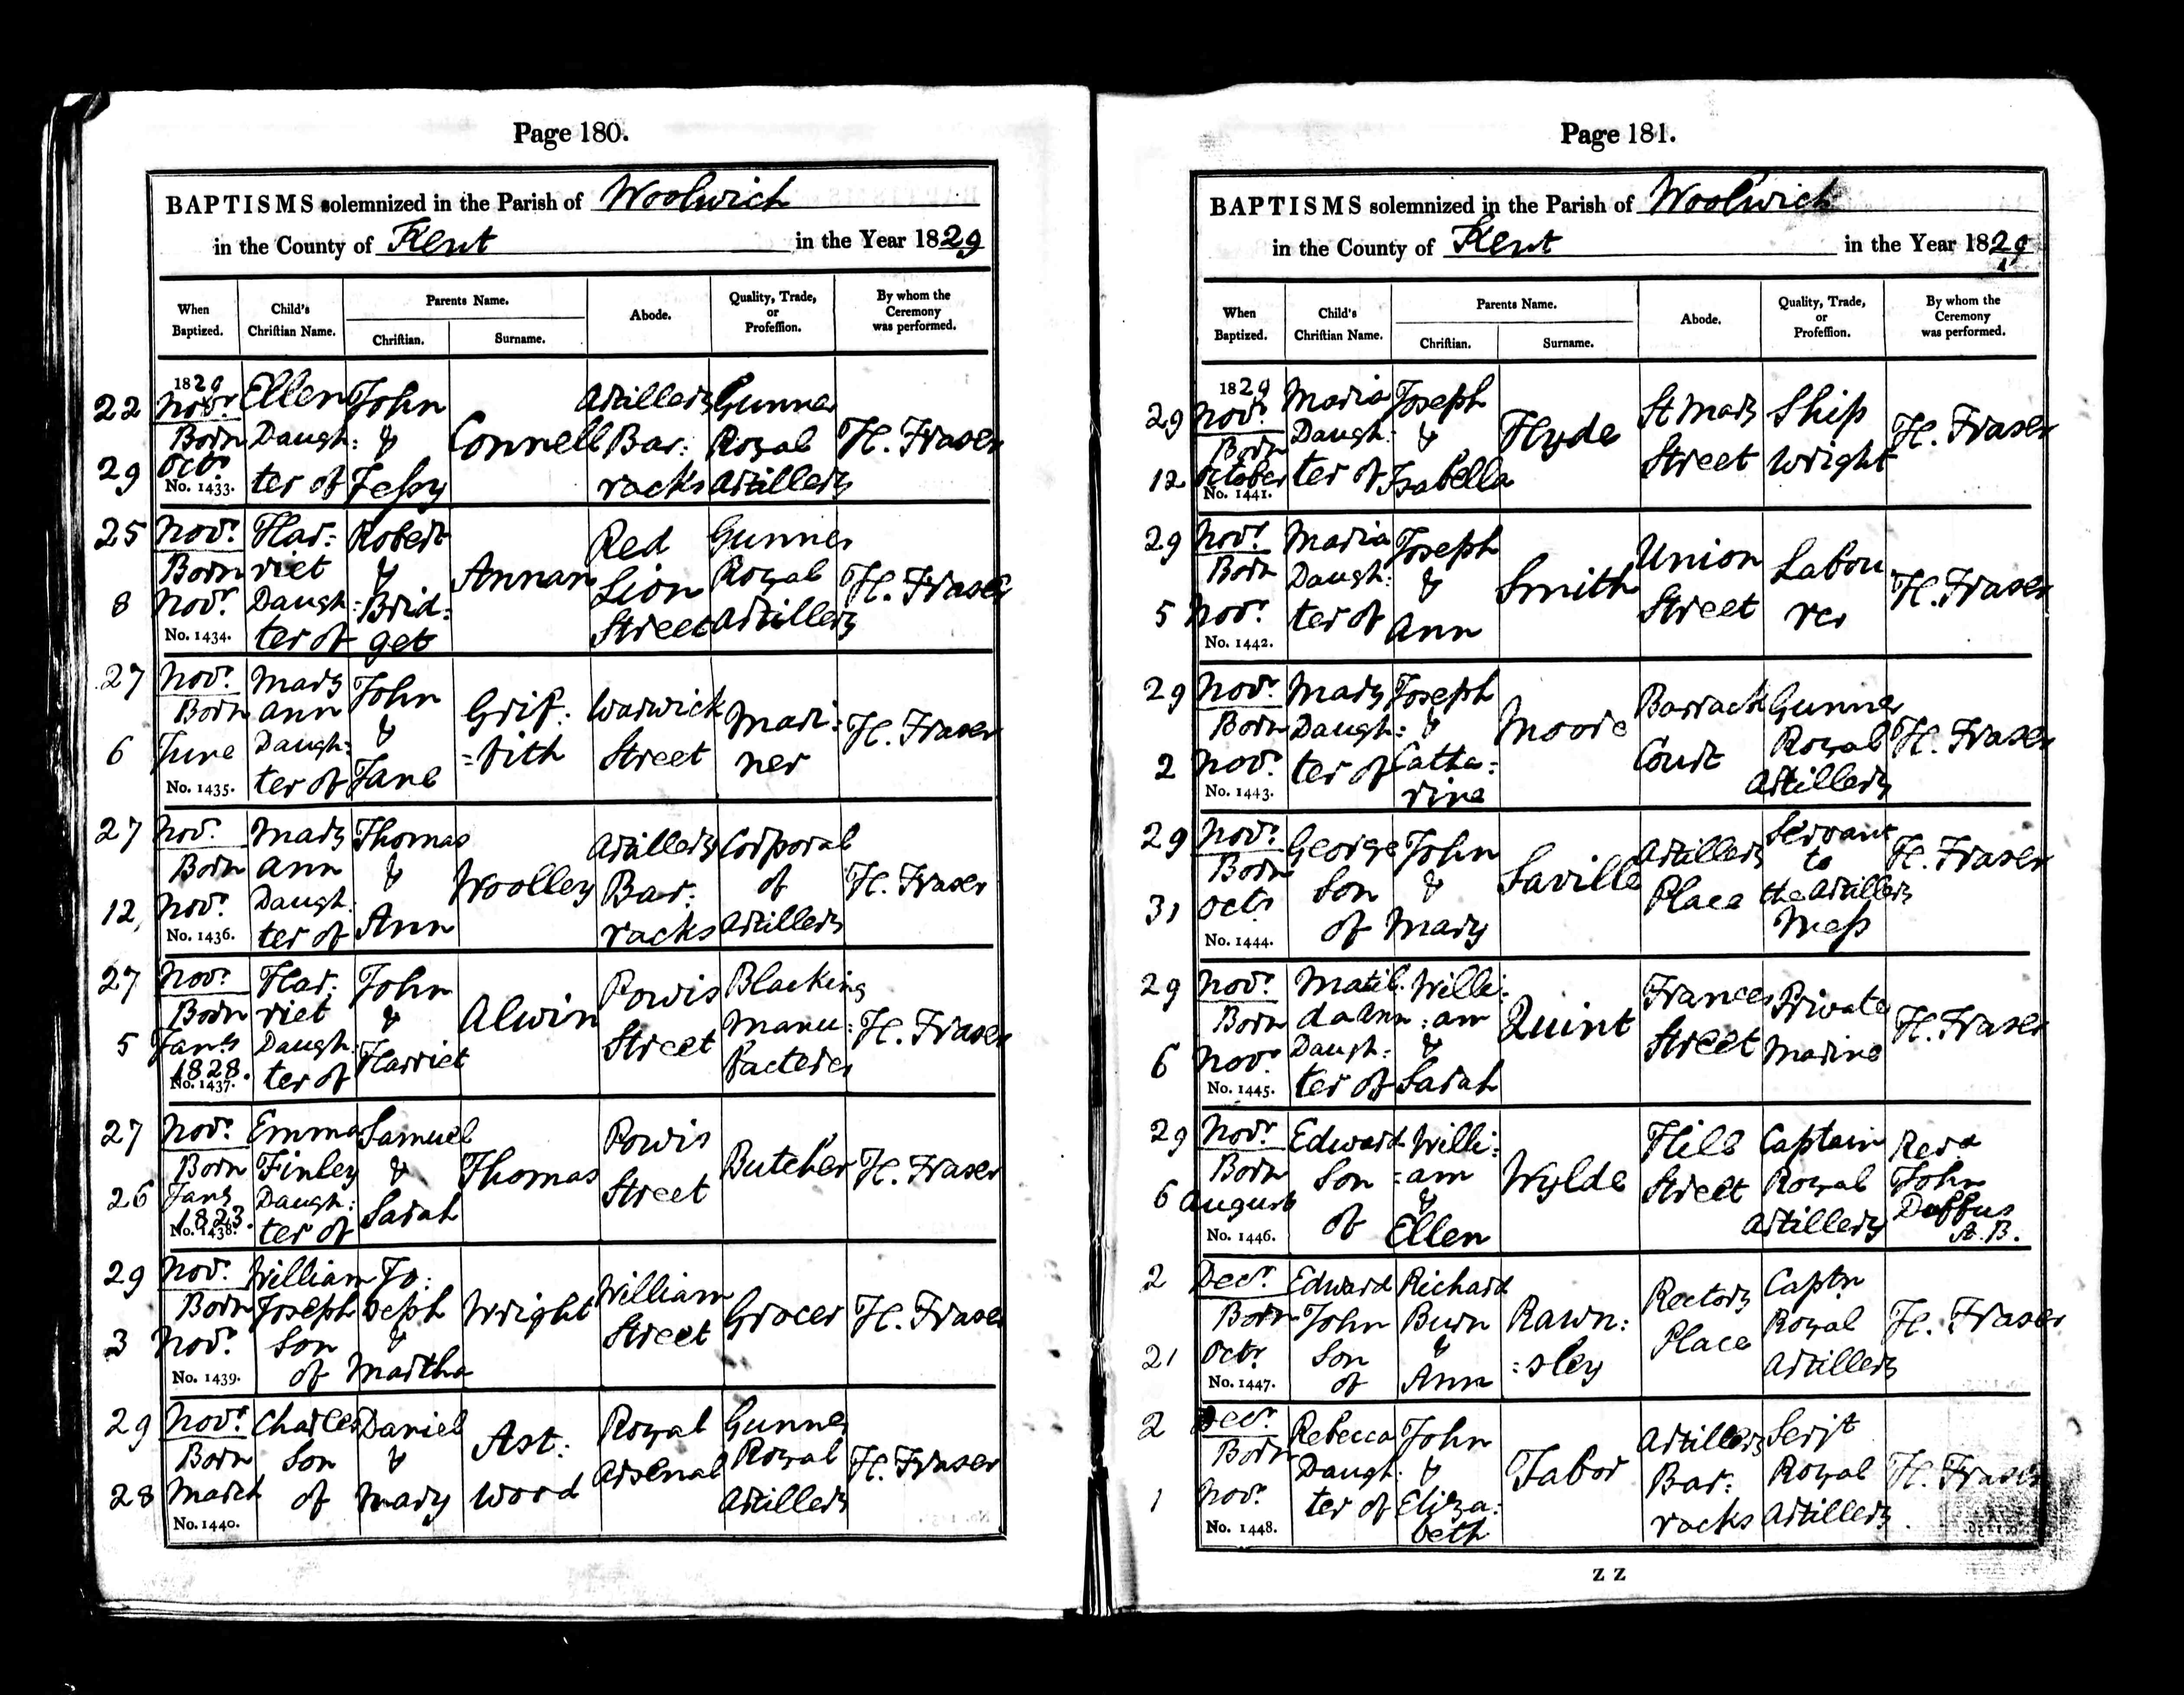 Page 180.
BAPTISMS solemnized in the Parish of Woolwich
in the County of Kent in the Year 1829
When Baptized. Child's Christian Name. Parents Name. Christian. Surname. Abode. Quality, Trade, or Profession. By whom the Ceremony was performed.
22 1829 Novr. Ellen John Artillery Gunner
Born Daugh: & Connell Bar: Royal H. Fraser
29 Octr. ter of Jessy racks Artillery
No. 1433.
25 Novr. Har: Robert Red Gunner
Born riet & Annan Lion Royal H. Fraser
8 Novr. Daugh: Brid: Street Artillery
No. 1434. ter of get
27 Novr. Mary John Grif: Warwick Mari: H. Fraser
Born Ann &
6 June Daugh: =fith Street ner
No. 1435. ter of Jane
27 Novr. Mary Thomas Artillery Corporal
Born Ann & Woolley Bar: of H. Fraser
12 Novr. Daugh: Ann racks Artillery
No. 1436. ter of
27 Novr. Har: John Powis Blacking
Born riet & Alwin Street Manu: H. Fraser
5 Jany. Daugh: Harriet facterer
1828. ter of
No. 1437.
27 Novr. Emma Samuel Powis
Born Finley & Thomas Street Butcher H. Fraser
26 Jany Daugh: Sarah
1823. ter of
No. 1438.
29 Novr. William Jo: William
Born Joseph seph Wright Street Grocer H. Fraser
3 Novr. Son &
No. 1439. of Martha
29 Novr. Charles Daniel Ast: Royal Gunner
Born Son & Arsenal Royal H. Fraser
28 March of Mary wood Artillery
No. 1440.
Page 181.
BAPTISMS solemnized in the Parish of Woolwich
in the County of Kent in the Year 1829
When Baptized. Child's Christian Name. Parents Name. Christian. Surname. Abode. Quality, Trade, or Profession. By whom the Ceremony was performed.
29 1829 Novr. Maria Joseph St Mary Ship
Born Daugh: & Hyde H. Fraser
12 October ter of Isabella Street Wright
No. 1441.
29 Novr. Maria Joseph Union Labou
Born Daugh: & Smith H. Fraser
5 Novr. ter of Ann Street rer
No. 1442.
29 Novr. Mary Joseph Barrack Gunner
Born Daugh: & Moore Court Royal H. Fraser
2 Novr. ter of Catha: Artillery
No. 1443. rine
29 Novr. George John Artillery Servant
Born Son & Saville to H. Fraser
31 Octr. of Mary Place the Artillery
No. 1444. Mess
29 Novr. Matil: Willi: Frances Private
Born da Ann :am Quint Street Marine H. Fraser
6 Novr. Daugh: &
No. 1445. ter of Sarah
29 Novr. Edward Willi: Hill Captain Revd
Born Son =am Wylde Street Royal John
6 August of & Artillery Duffus
No. 1446. Ellen A.B.
2 Decr. Edward Richard Rectory Captn
Born John Burn Rawn: Place Royal H. Fraser
21 Octr. Son & :sley Artillery
No. 1447. of Ann
2 Decr. Rebecca John Artillery Serjt
Born Daugh: & Tabor Bar: Royal H. Fraser
1 Novr. ter of Eliza: racks Artillery
No. 1448. beth
Z Z